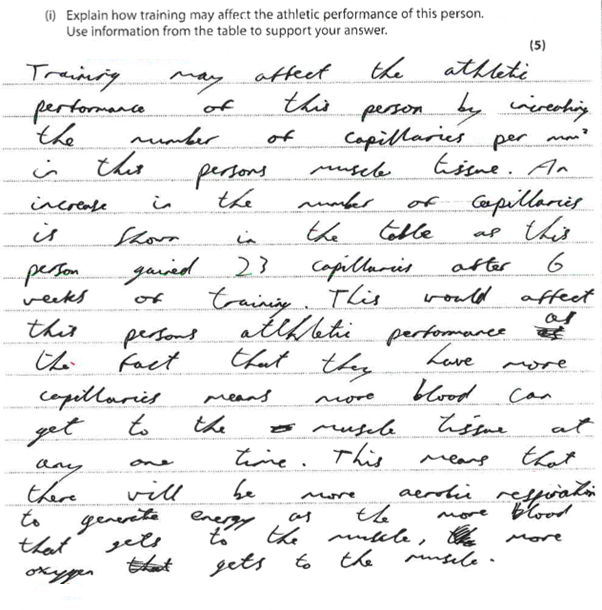 (i) Explain how training may affect the athletic performance of this person.
Use information from the table to support your answer.
(5)
Training may affect the athletic
performance of this person by increasing
the number of capillaries per mm²
in this persons muscle tissue. An
increase in the number of capillaries
is shown in the table as this
person gained 23 capillaries after 6
weeks of training. This would affect
this persons athletic performance as
the fact that they have more
capillaries means more blood can
get to the muscle tissue at
any one time. This means that
there will be more aerobic respiration
to generate energy as the more blood
that gets to the muscle, more
oxygen gets to the muscle.